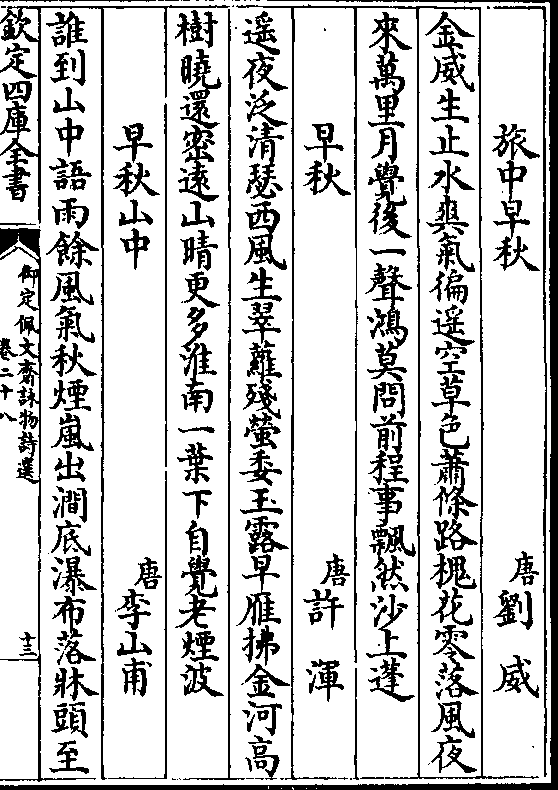 旅中早秋　唐劉威
金威生止水爽氣徧遥空草色蕭條路槐花零落風夜
來萬里月覺後一聲鴻莫問前程事飄然沙上蓬
早秋　唐許渾
遥夜泛清瑟西風生翠蘿殘螢委玉露早雁拂金河高
樹曉還密遠山晴更多淮南一葉下自覺老煙波
早秋山中　唐李山甫
誰到山中語雨餘風氣秋煙嵐出澗底瀑布落牀頭至
欽定四庫全書
御定佩文齋詠物詩選
卷二十八
十三